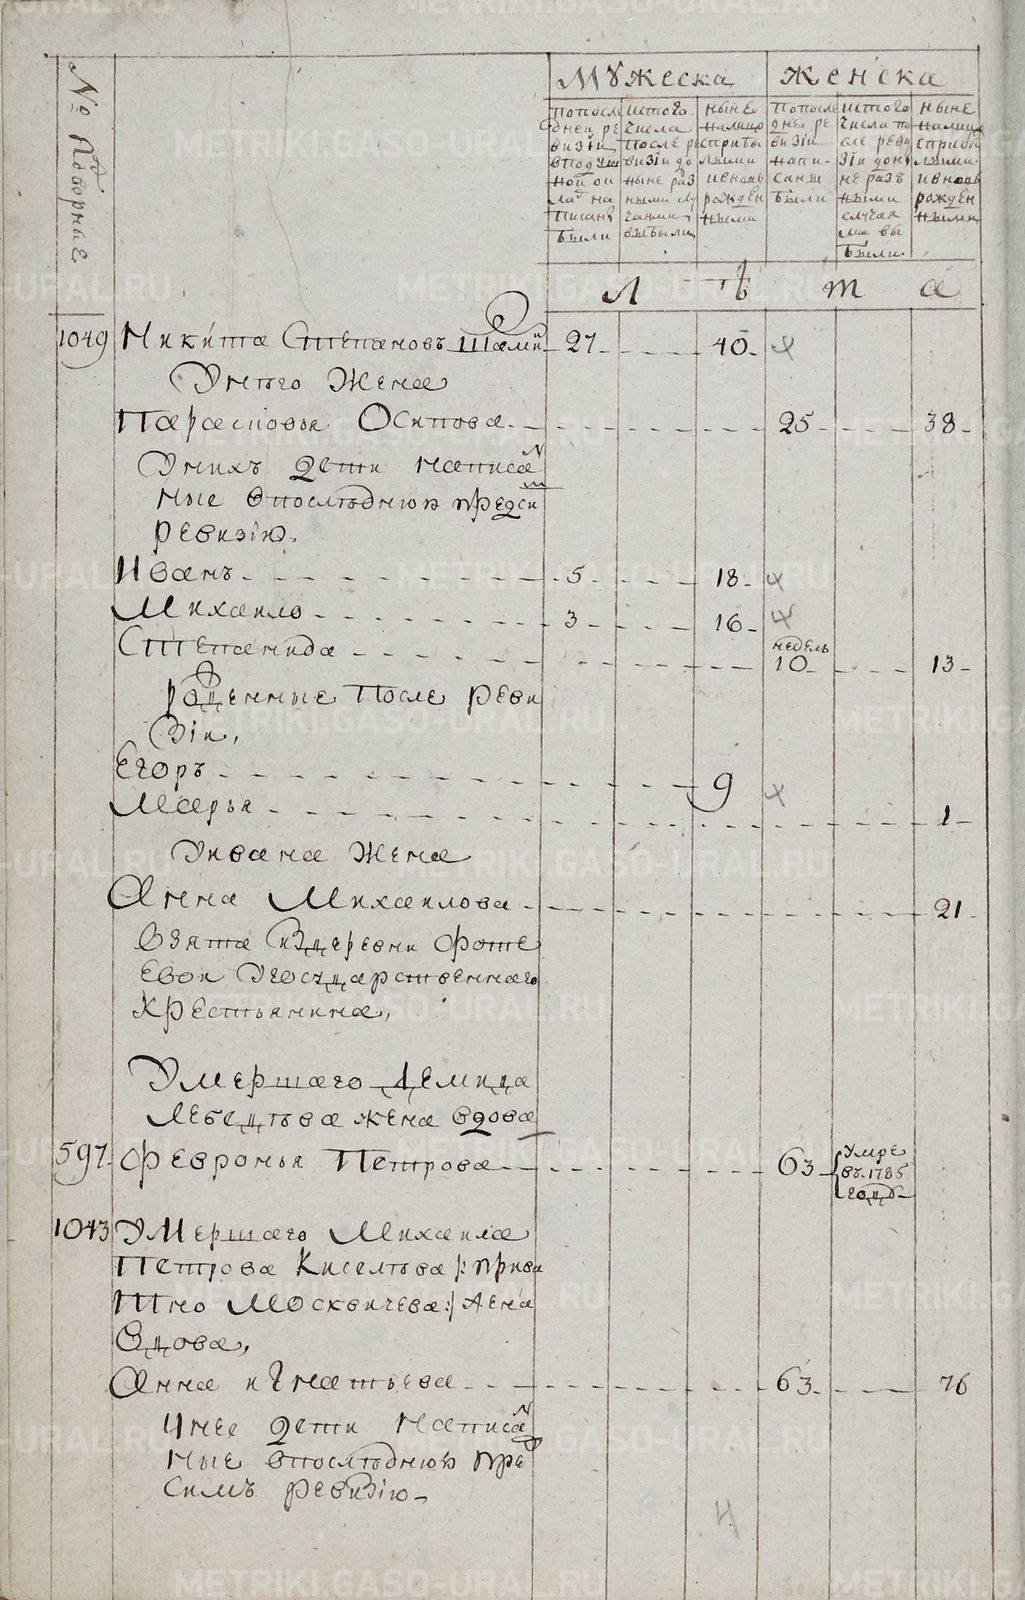 № Подворные
Мужеска
Женска
По после
дней ре
визіи
в подуш
ной ок
лад на
писаны
были
ис того
числа
после ре
визіи до
ныне раз
ными слу
чаями
выбыли
ныне
на лицо
с прибы
лыми
и вновь
рожден
ными
По после
дней ре
визіи
напи
саны
были
ис того
числа по
сле реви
зіи до ны
не разъ
ными
случая
ми вы
были
ныне
на лице
с прибы
лыми
и вновь
рожден
ными
Л ѣ т а
1049 Никита Степановъ Шами 27 40
У него жена
Парасковья Осипова 25 38
У нихъ дети написан
ные в последнюю предсим
ревизію.
Иванъ 5 18
Михаило 3 16
Степанида недель 10 13
рожденные после реви
зіи,
Егоръ 9
Марья 1
У ивана жена
Анна Михаилова 21
взята из деревни Фоте
евои у государственнаго
крестьянина,
Умершаго Демида
Лебедѣва жена вдова
597 Февронья Петрова 63 умре
въ 1785
годѣ
1043 Умершаго Михаила
Петрова Киселѣва /: прива
тно Москвичева :/ жена
вдова,
Анна Игнатьева 63 76
У нее дети написан
ные в последнюю пред
симъ ревизію